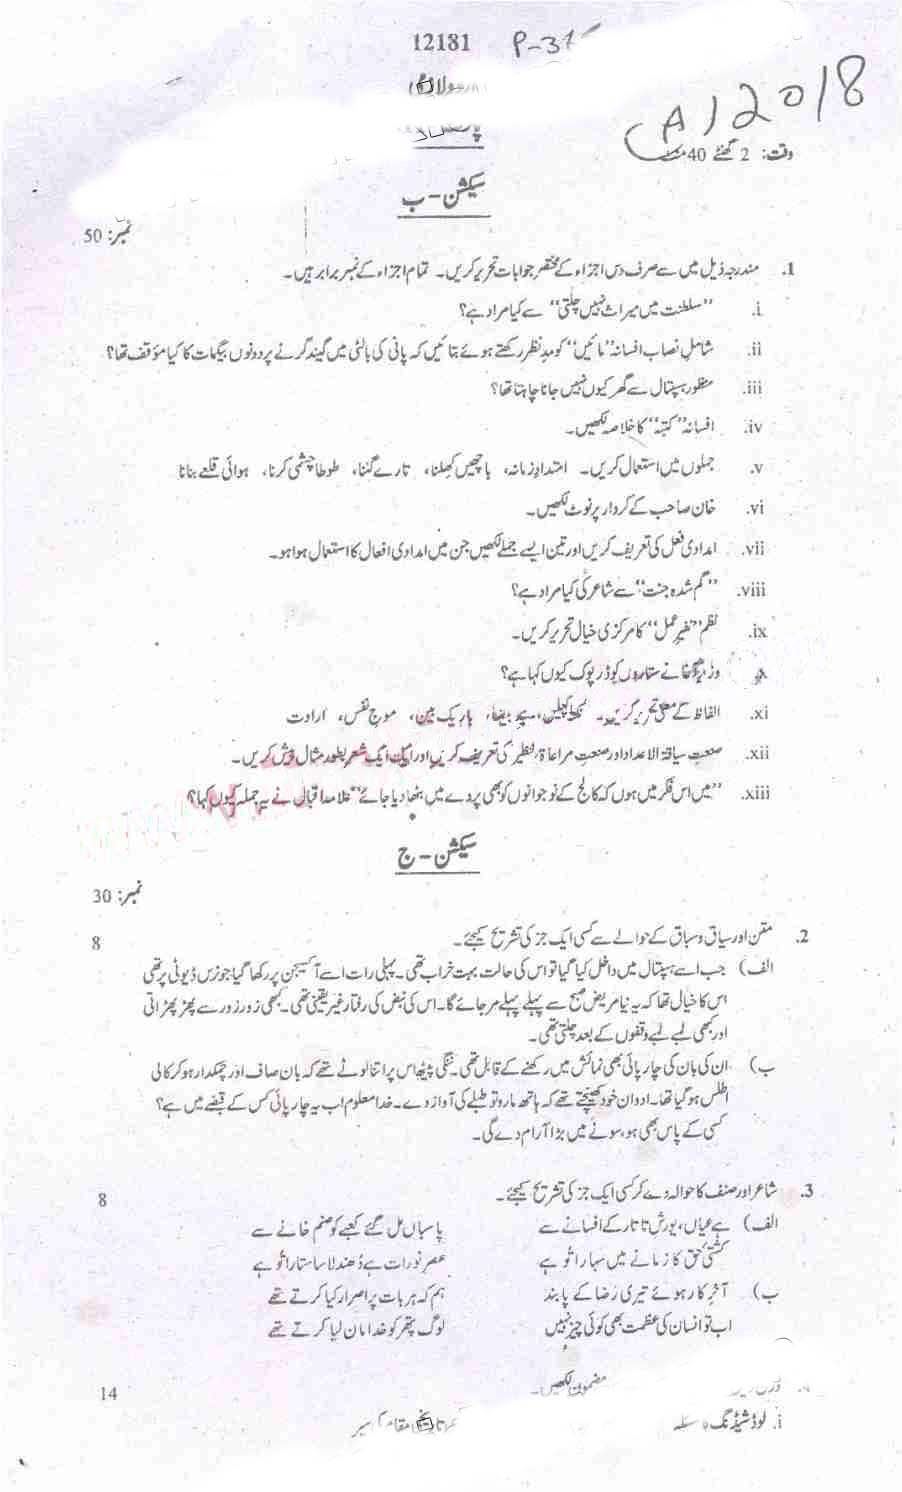 12181 P-31
A/2018
وقت: 2 گھنٹے 40 منٹ
سیکشن - ب
نمبر: 50
1. مندرجہ ذیل میں سے صرف دس اجزاء کے مختصر جوابات تحریر کریں۔ تمام اجزاء کے نمبر برابر ہیں۔
i. "سلطنت میں میراث نہیں چلتی" سے کیا مراد ہے؟
ii. شاملِ نصاب افسانہ "مائیں" کو مدِنظر رکھتے ہوئے بتائیں کہ پانی کی بالٹی میں گیند گرنے پر دونوں بیگمات کا کیا مؤقف تھا؟
iii. منظور ہسپتال سے گھر کیوں نہیں جانا چاہتا تھا؟
iv. افسانہ "کتبہ" کا خلاصہ لکھیں۔
v. جملوں میں استعمال کریں۔ امتدادِ زمانہ، باچھیں کھلنا، تارے گننا، طوطا چشمی کرنا، ہوائی قلعے بنانا
vi. خان صاحب کے کردار پر نوٹ لکھیں۔
vii. امدادی فعل کی تعریف کریں اور تین ایسے جملے لکھیں جن میں امدادی افعال کا استعمال ہوا ہو۔
viii. "گم شدہ جنت" سے شاعر کی کیا مراد ہے؟
ix. نظم "غیر عمل" کا مرکزی خیال تحریر کریں۔
x. وزیر آغا نے ستاروں کو ڈرپوک کیوں کہا ہے؟
xi. الفاظ کے معنی تحریر کریں۔ باریک بین، موجِ نفس، ارادت
xii. صنعت سیاقۃ الاعداد اور صنعت مراعاۃ النظیر کی تعریف کریں اور ایک ایک شعر بطور مثال پیش کریں۔
xiii. "میں اس فکر میں ہوں کہ کالج کے نوجوانوں کو بھی پردے میں بٹھا دیا جائے" علامہ اقبال نے یہ جملہ کیوں کہا؟
سیکشن - ج
نمبر: 30
2. متن اور سیاق و سباق کے حوالے سے کسی ایک جز کی تشریح کیجئے۔ 8
الف) جب اسے ہسپتال میں داخل کیا گیا تو اس کی حالت بہت خراب تھی۔ پہلی رات اسے آکسیجن پر رکھا گیا جو نرس ڈیوٹی پر تھی
اس کا خیال تھا کہ یہ نیا مریض صبح سے پہلے پہلے مر جائے گا۔ اس کی نبض کی رفتار غیر یقینی تھی۔ کبھی زور زور سے پھڑپھڑاتی
اور کبھی لمبے لمبے وقفوں کے بعد چلتی تھی۔
ب) ان کی بان کی چارپائی بھی نمائش میں رکھنے کے قابل تھی۔ ننگی پیٹھ اس پر اتنا لوٹے تھے کہ بان صاف اور چمکدار ہو کر کالی
اطلس ہو گیا تھا۔ ادوان خود کھینچتے تھے کہ ہاتھ مارو تو طبلے کی آواز دے۔ خدا معلوم اب یہ چارپائی کس کے قبضے میں ہے؟
کسی کے پاس بھی ہو، سونے میں بڑا آرام دے گی۔
3. شاعر اور صنف کا حوالہ دے کر کسی ایک جز کی تشریح کیجئے۔ 8
الف) ہے عیاں، یورشِ تاتار کے افسانے سے پاسباں مل گئے کعبے کو صنم خانے سے
کشتیٔ حق کا زمانے میں سہارا تُو ہے عصرِ نو رات ہے دُھندلا سا ستارا تُو ہے
ب) آخرِ کار ہوئے تیری رضا کے پابند ہم کہ ہر بات پر اصرار کیا کرتے تھے
اب تو انسان کی عظمت بھی کوئی چیز نہیں لوگ پتھر کو خدا مان لیا کرتے تھے
مضمون لکھیں۔ 14
i. لوڈ شیڈنگ کا مسئلہ تاریخی مقام کی سیر